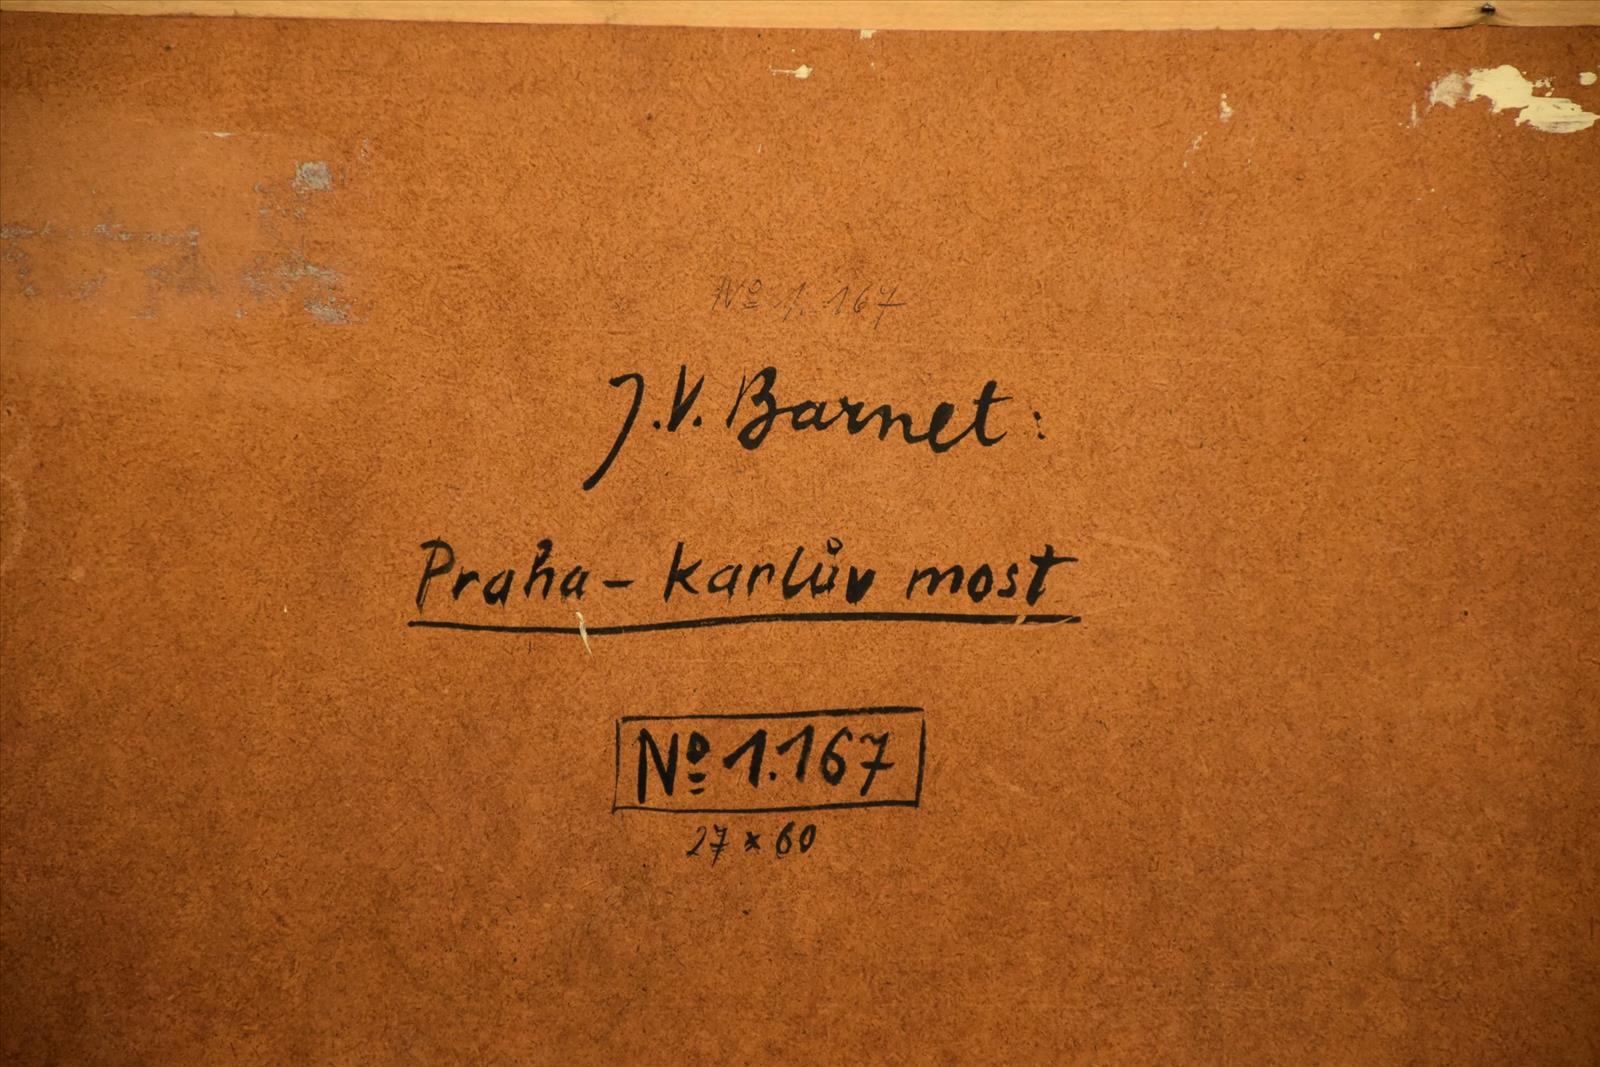 Nº 1.167
J.V. Barnet:
Praha - Karlův most
Nº 1.167
27 × 60